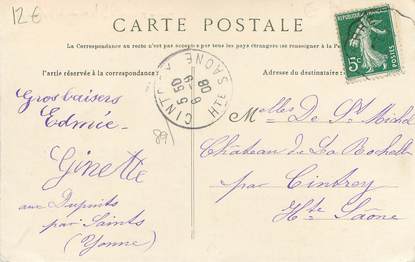 12€
CARTE POSTALE
La Correspondance au recto n'est pas acceptée par tous les pays étrangers (se renseigner à la
Partie réservée à la correspondance
Adresse du destinataire
REPUBLIQUE FRANÇAISE
5c
CINTREY
5 50
9 -9
08
HTE SAÔNE
Gros baisers
Edmée -
Ginette
aux Dupints
par Saints
(Yonne)
89
Melles De St Michel
Château de La Rochelle
par Cintrey
Hte Saône